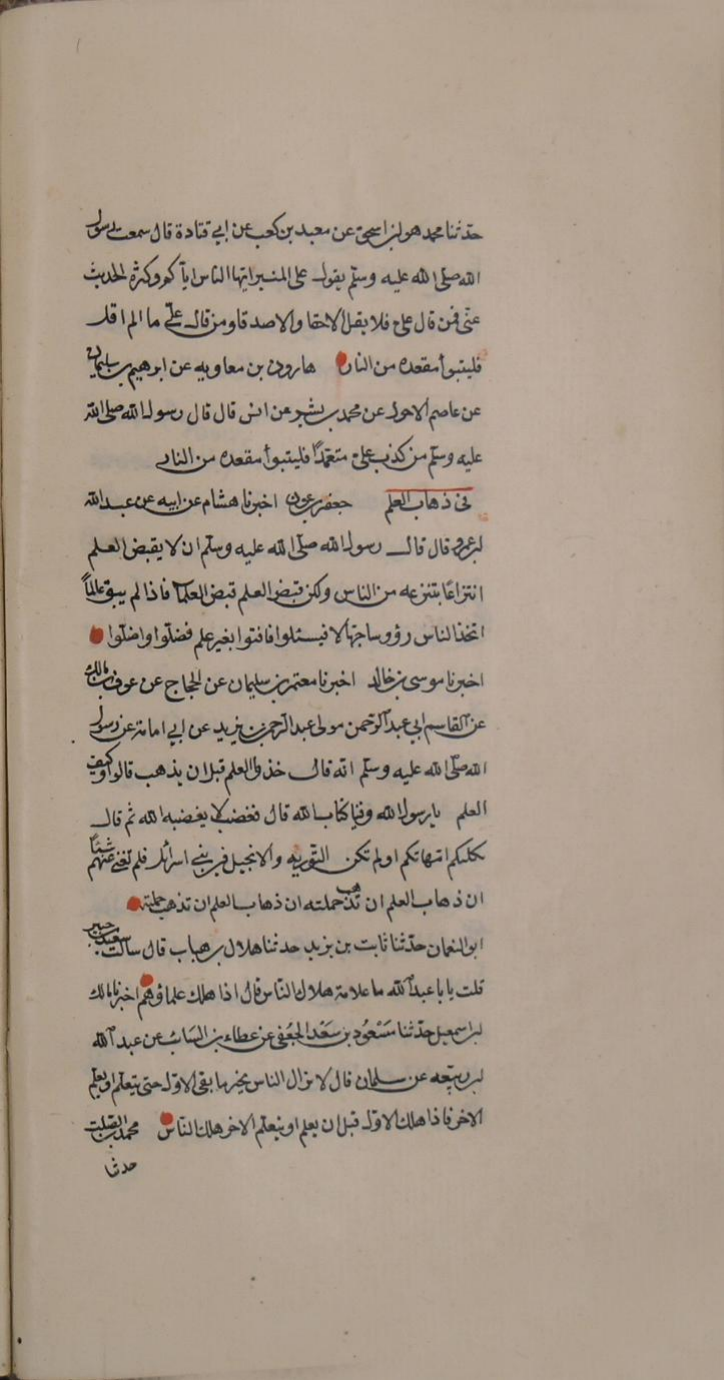 حدثنا محمد هو ابن اسحق عن معبد بن كعب عن ابي قتادة قال سمعت رسول
الله صلى الله عليه وسلم يقول على المنبر ايها الناس اياكم وكثرة الحديث
عني فمن قال علي فلا يقل الا حقا والا صدقا ومن قال علي ما لم اقل
فليتبوأ مقعده من النار هارون بن معاوية عن ابرهيم بن سليمان
عن عاصم الاحول عن محمد بن بشر عن انس قال قال رسول الله صلى الله
عليه وسلم من كذب علي متعمدًا فليتبوأ مقعده من النار
في ذهاب العلم جعفر بن عون اخبرنا هشام عن ابيه عن عبد الله
بن عمرو قال قال رسول الله صلى الله عليه وسلم ان لا يقبض العلم
انتزاعًا ينتزعه من الناس ولكن قبض العلم قبض العلماء فاذا لم يبق عالمًا
اتخذ الناس رؤوسا جهالا فيسئلوا فافتوا بغير علم فضلّوا واضلّوا
اخبرنا موسى بن خالد اخبرنا معتمر بن سليمان عن الحجاج عن عوف بن مالك
عن القاسم ابي عبد الرحمن مولى عبد الرحمن بن يزيد عن ابي امامة عن رسول
الله صلى الله عليه وسلم انه قال خذوا العلم قبل ان يذهب قالوا وكيف
العلم يا رسول الله وفينا كتاب الله قال فغضب لا يغضبه الله ثم قال
ثكلتكم امهاتكم اولم تكن التورية والانجيل في بني اسرائل فلم تغن عنهم شيئًا
ان ذهاب العلم ان تذهب حملته ان ذهاب العلم ان تذهب حملته
ابو النعمان حدثنا ثابت بن يزيد حدثنا هلال بن هباب قال سالت سعيد بن جبير
قلت يابا عبد الله ما علامة هلاك الناس قال اذا هلك علماؤهم اخبرنا مالك
بن اسمعيل حدثنا مسعود بن سعد الجعفي عن عطاء بن السائب عن عبد الله
بن ربيعه عن سلمان قال لا يزال الناس بخير ما بقى الاول حتى يتعلم او يعلم
الاخر فاذا هلك الاول قبل ان يعلم او يتعلم الاخر هلك الناس محمد بن الصلت
حدثنا